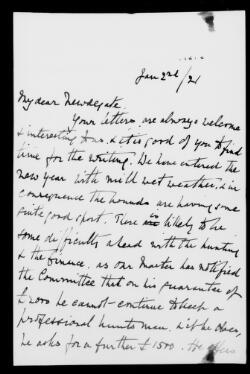 Jan 2nd/21
My dear Newdegate.
Your letters are always welcome
& interesting to us, & it is good of you to find
time for the writing. We have entered the
New Year with mild wet weather, & in
consequence the hounds are having some
quite good sport. There is likely to be
some difficulty ahead with the hunting
& the finance, as our Master has notified
the Committee that on his guarantee of
£2000 he cannot continue to keep a
professional huntsman, & if he does,
he asks for a further £1500. He